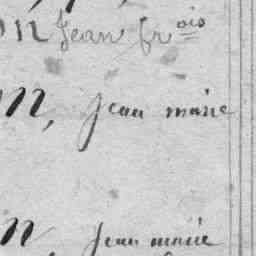 on Jean fr.ois
n, Jean marie
n, Jean marie